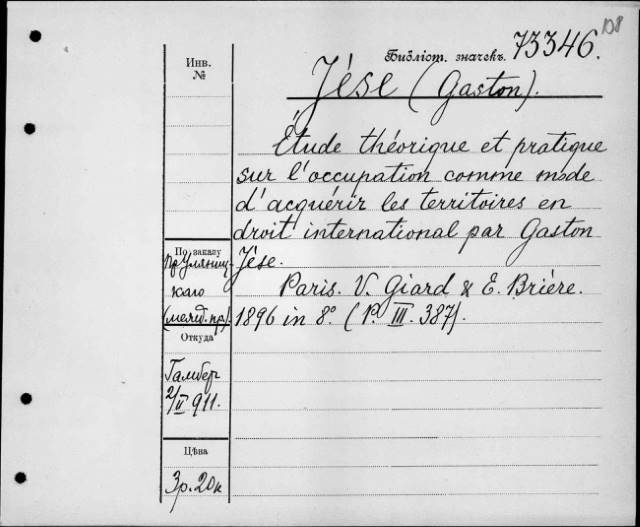 108
Библіот. значекъ. 73346.
Инв.
№
Jése (Gaston).
Étude théorique et pratique
sur l'occupation comme mode
d'acquérir les territoires en
droit international par Gaston
Jése.
Paris. V. Giard & E. Brière.
1896 in 8° (P. III. 387).
По заказу
пр Уляниц-
каго
(межд. пр).
Откуда
Гамбер
2/II 911.
Цѣна
3р. 20к